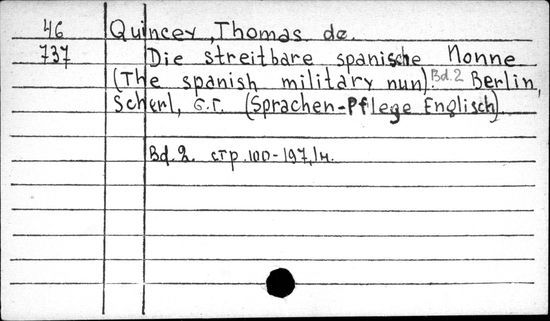 46 Quincey, Thomas de.
737 Die streitbare spanische Nonne
(The spanish military nun). Bd.2 Berlin,
Scherl, Б.Г. (Sprachen-Pflege Englisch).
Bd. 2. стр. 100-197, 1н.